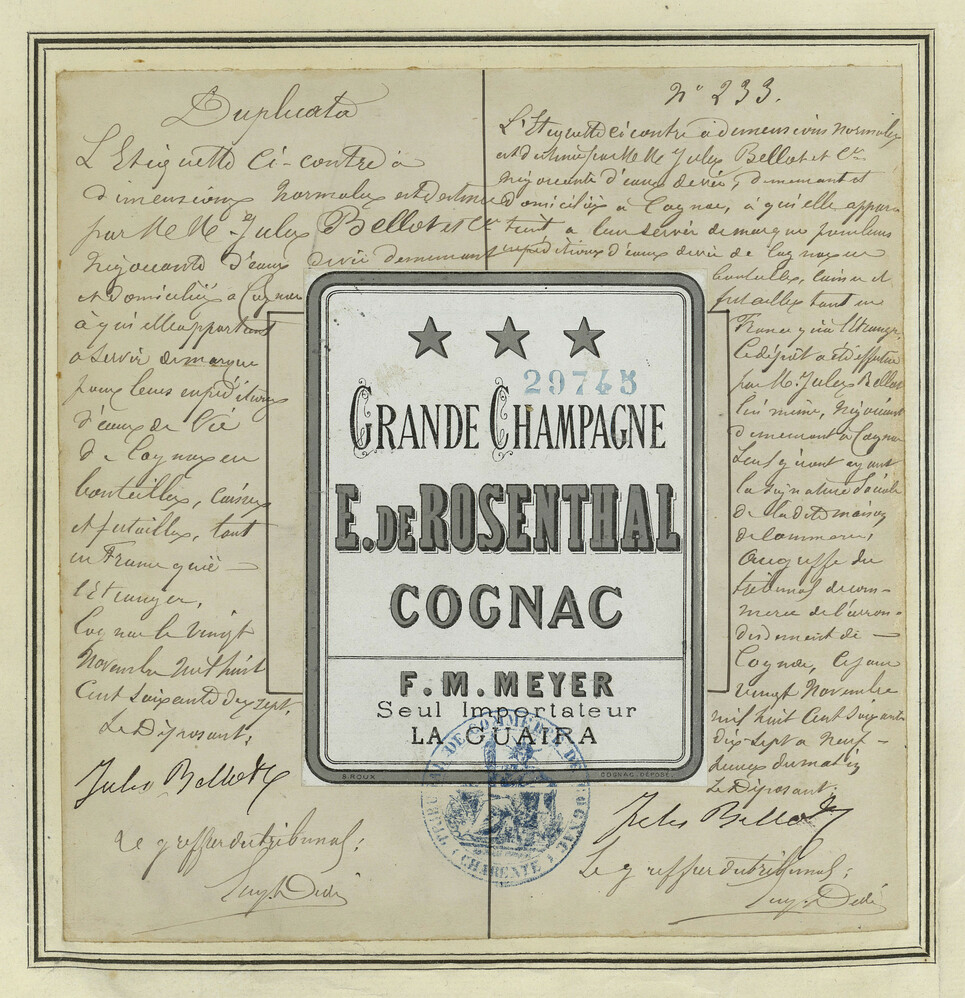 Duplicata
L'Etiquette ci-contre a
dimensions normales est destinée
par M M Jules Bellot et Cie
Négociants d'eaux de vie demeurant
et domiciliés à Cognac
à qui elle appartient
a servir de marque
pour leurs expéditions
d'eaux de Vie
de Cognac en
bouteilles, caisses
et futailles, tant
en France qu'à
l'étranger,
Cognac le vingt
Novembre mil huit
Cent soixante dix sept.
Le Déposant;
Jules Bellot
Le greffier du tribunal;
N° 233.
L'Etiquette ci contre a dimensions normales
est destinée par M M Jules Bellot et Cie
négociants d'eaux de vie, demeurant et
domiciliés à Cognac, à qui elle appar-
tient a leur servir de marque pour leurs
expéditions d'eaux de vie de Cognac en
bouteilles, caisses et
futailles tant en
France qu'à l'étranger.
Le dépôt a été effectué
par M. Jules Bellot
lui même, Négociant
demeurant à Cognac
ayant
la signature sociale
de la dite maison
de commerce,
Au greffe du
tribunal de com-
merce de l'arron-
dissement de
Cognac, ce jour
vingt Novembre
mil huit Cent soixante
dix-sept a neuf
heures du matin
Le Déposant:
Jules Bellot
Le greffier du tribunal;
29745
GRANDE CHAMPAGNE
E. DE ROSENTHAL
COGNAC
F. M. MEYER
Seul Importateur
LA GUAIRA
B. ROUX
COGNAC. DÉPOSÉ.
TRIBUNAL DE COMMERCE DE COGNAC
(CHARENTE)